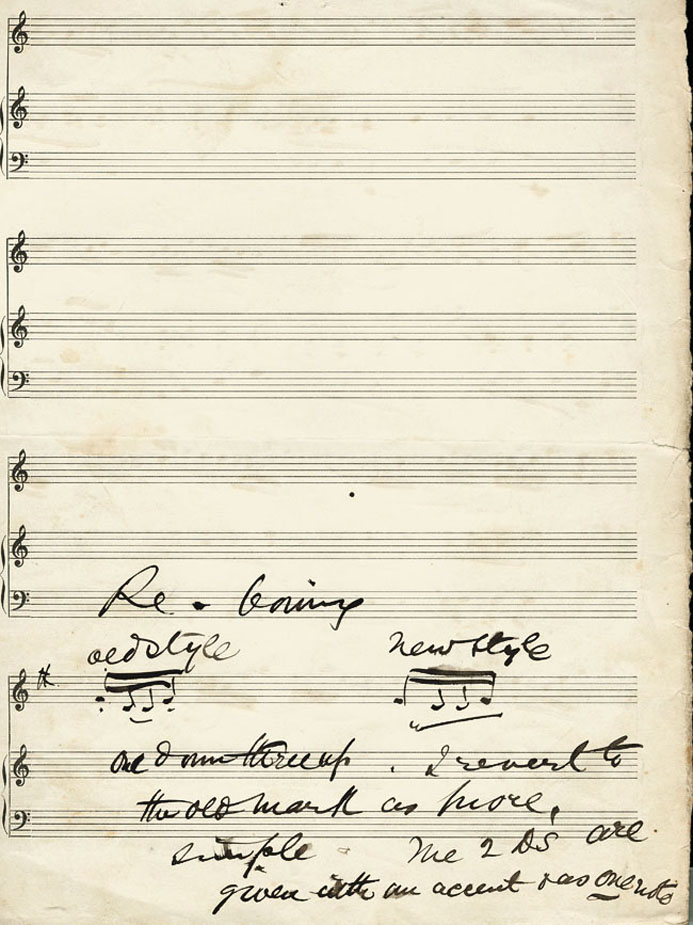 Re - Bowing
old style new style
one down three up . I revert to
the old mark as more,
simple - The 2 Ds are
given with an accent & as one note